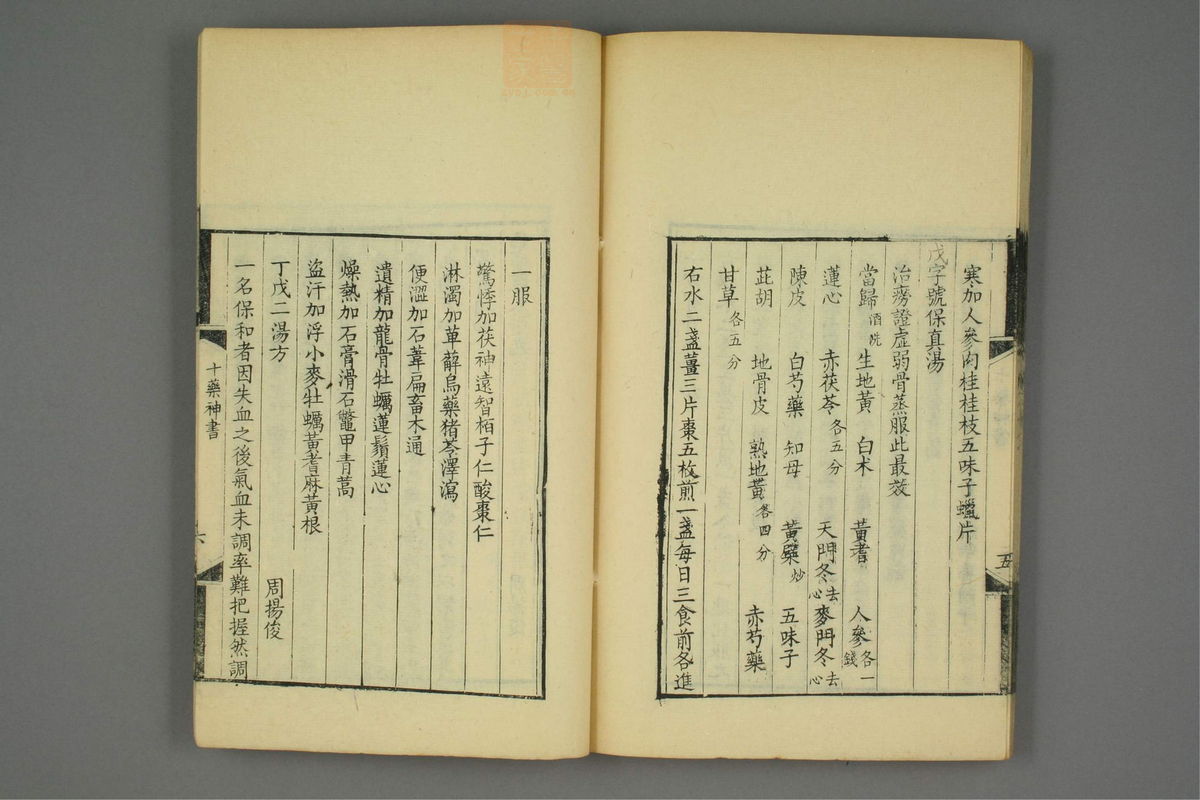 寒加人參肉桂桂枝五味子蠟片
戊字號保真湯
治癆證虛弱骨蒸服此最效
當歸酒洗 生地黃 白术 黃耆 人參各一錢
蓮心 赤茯苓各五分 天門冬去心 麥門冬去心
陳皮 白芍藥 知母 黃蘗炒 五味子
茈胡 地骨皮 熟地黃各四分 赤芍藥
甘草各五分
右水二盞薑三片棗五枚煎一盞每日三食前各進
五
一服
驚悸加茯神遠智栢子仁酸棗仁
淋濁加萆薢烏藥猪苓澤瀉
便澀加石葦扁畜木通
遺精加龍骨牡蠣蓮鬚蓮心
燥熱加石膏滑石鼈甲青蒿
盜汗加浮小麥牡蠣黃耆麻黃根
丁戊二湯方 周揚俊
一名保和者因失血之後氣血未調率難把握然調
十藥神書
六